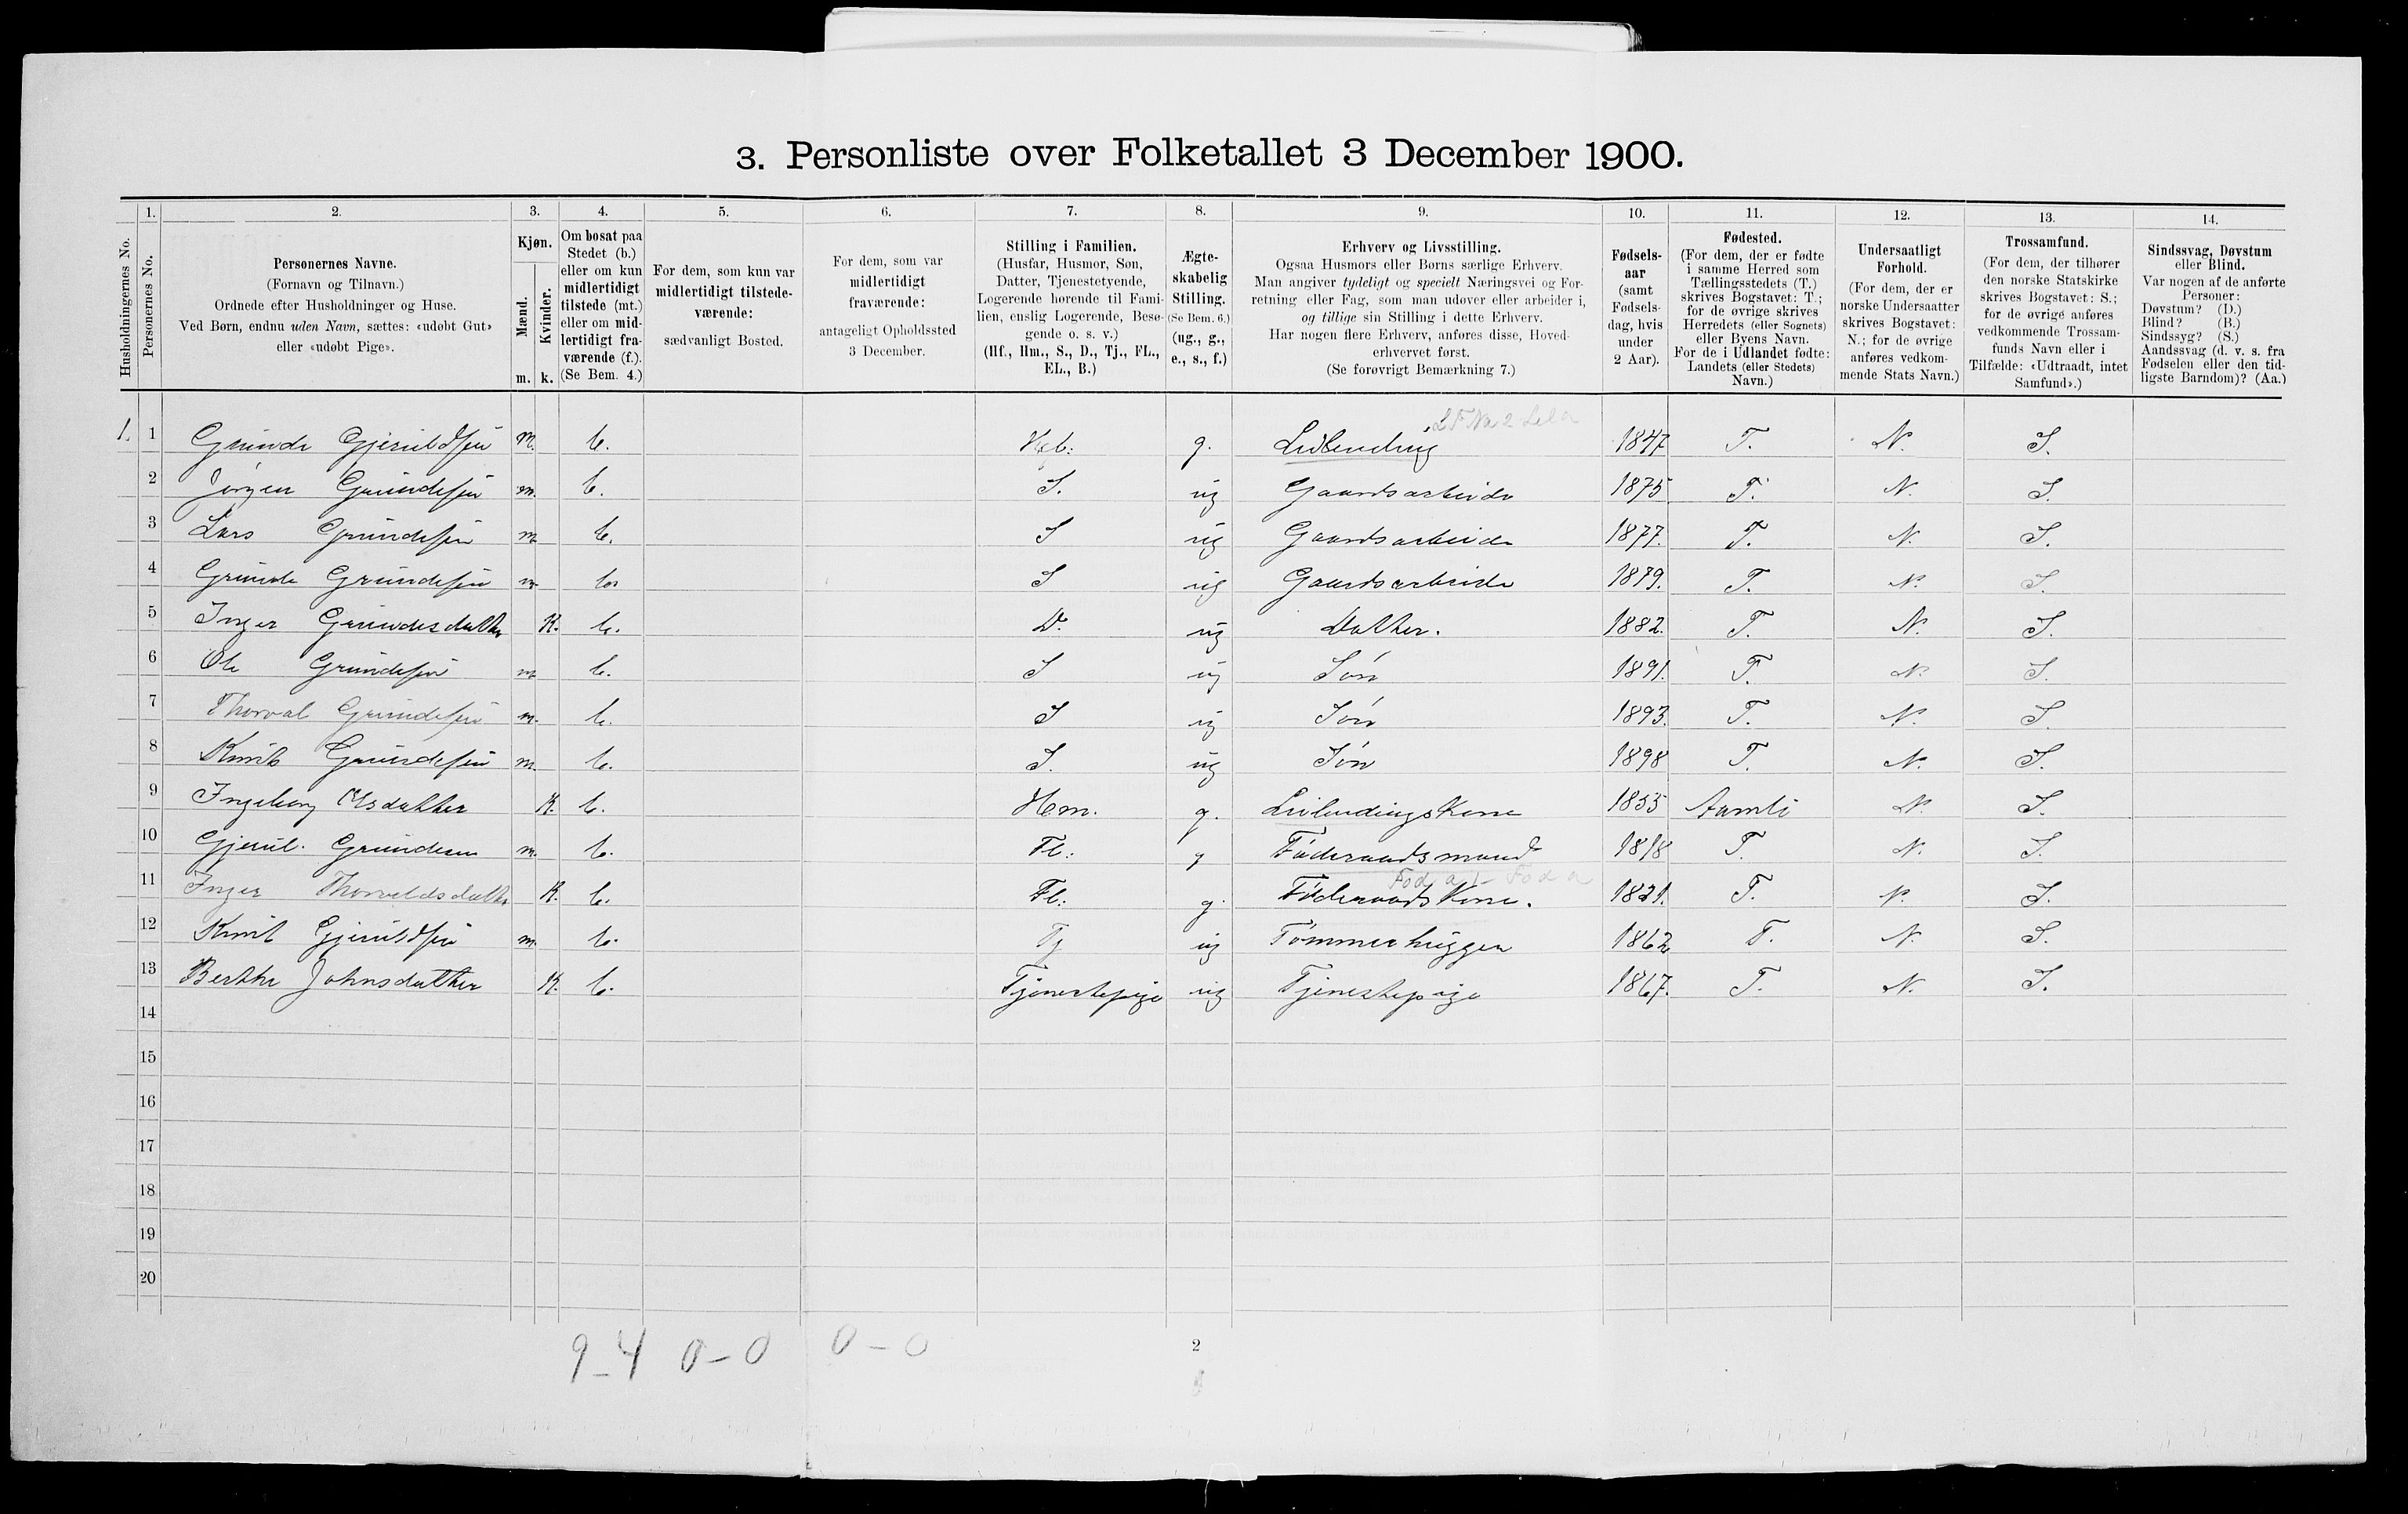 3. Personliste over Folketallet 3 December 1900.
Husholdningernes No.
1. 2. 3. 4. 5. 6. 7. 8. 9. 10. 11. 12. 13. 14.
Personernes No.
Personernes Navne.
(Fornavn og Tilnavn.)
Ordnede efter Husholdninger og Huse.
Ved Børn, endnu uden Navn, sættes: «udøbt Gut»
eller «udøbt Pige».
Kjøn.
Mænd.
Kvinder.
m. k.
Om bosat paa
Stedet (b.)
eller om kun
midlertidigt
tilstede (mt.)
eller om mid-
lertidigt fra-
værende (f.).
(Se Bem. 4.)
For dem, som kun var
midlertidigt tilstede-
værende:
sædvanligt Bosted.
For dem, som var
midlertidigt
fraværende:
antageligt Opholdssted
3 December.
Stilling i Familien.
(Husfar, Husmor, Søn,
Datter, Tjenestetyende,
Logerende hørende til Fami-
lien, enslig Logerende, Besø-
gende o. s. v.)
(Hf., Hm., S., D., Tj., FL.,
EL., B.)
Ægte-
skabelig
Stilling.
(Se Bem. 6.)
(ug., g.,
e., s., f.)
Erhverv og Livsstilling.
Ogsaa Husmors eller Børns særlige Erhverv.
Man angiver tydeligt og specielt Næringsvei og For-
retning eller Fag, som man udøver eller arbeider i,
og tillige sin Stilling i dette Erhverv.
Har nogen flere Erhverv, anføres disse, Hoved-
erhvervet først.
(Se forøvrigt Bemærkning 7.)
Fødsels-
aar
(samt
Fødsels-
dag, hvis
under
2 Aar).
Fødested.
(For dem, der er fødte
i samme Herred som
Tællingsstedets (T.)
skrives Bogstavet: T.;
for de øvrige skrives
Herredets (eller Sognets)
eller Byens Navn.
For de i Udlandet fødte:
Landets (eller Stedets)
Navn.)
Undersaatligt
Forhold.
(For dem, der er
norske Undersaatter
skrives Bogstavet:
N.; for de øvrige
anføres vedkom-
mende Stats Navn.)
Trossamfund.
(For dem, der tilhører
den norske Statskirke
skrives Bogstavet: S.;
for de øvrige anføres
vedkommende Trossam-
funds Navn eller i
Tilfælde: «Udtraadt, intet
Samfund».)
Sindssvag, Døvstum
eller Blind.
Var nogen af de anførte
Personer:
Døvstum? (D.)
Blind? (B.)
Sindssyg? (S.)
Aandssvag (d. v. s. fra
Fødselen eller den tid-
ligste Barndom)? (Aa.)
1. 1 Grunde Gjeruldsen m. b. g. 1847 T. N. S.
2 Jørgen Grundesen m. b. S. ug Gaardsarbeide 1875 T. N. S.
3 Lars Grundesen m b. S ug Gaardsarbeide 1877. T. N. S.
4 Grunde Grundesen m b. S ug Gaardsarbeide 1879. T. N. S.
5 Inger Grundesdatter K. b. D. ug Datter. 1882. T. N. S.
6 Ole Grundesen m b. S ug Søn 1891. T. N. S.
7 Thorval Grundesen m. b. S ug Søn 1893. T. N. S.
8 Knut Grundesen m. b. S. ug Søn 1898 T. N. S.
9 Ingeborg Olsdatter K. b. Hm. g. 1855 Aamli N. S.
10 Gjerul. Grundesen m. b. Fl: g Føderaadsmand 1818 T. N. S.
11 Inger Thorvaldsdatter K. b. Fl: g. Føderaads Kone. 1821. T. N. S.
12 Knut Gjeruldsen m. b. Tj ug Tømmerhugger 1862 T. N. S.
13 Berthe Johnsdatter K. b. Tjenestepige ug Tjenestepige 1867. T. N. S.
14
15
16
17
18
19
20
9-4 0-0 0-0
2